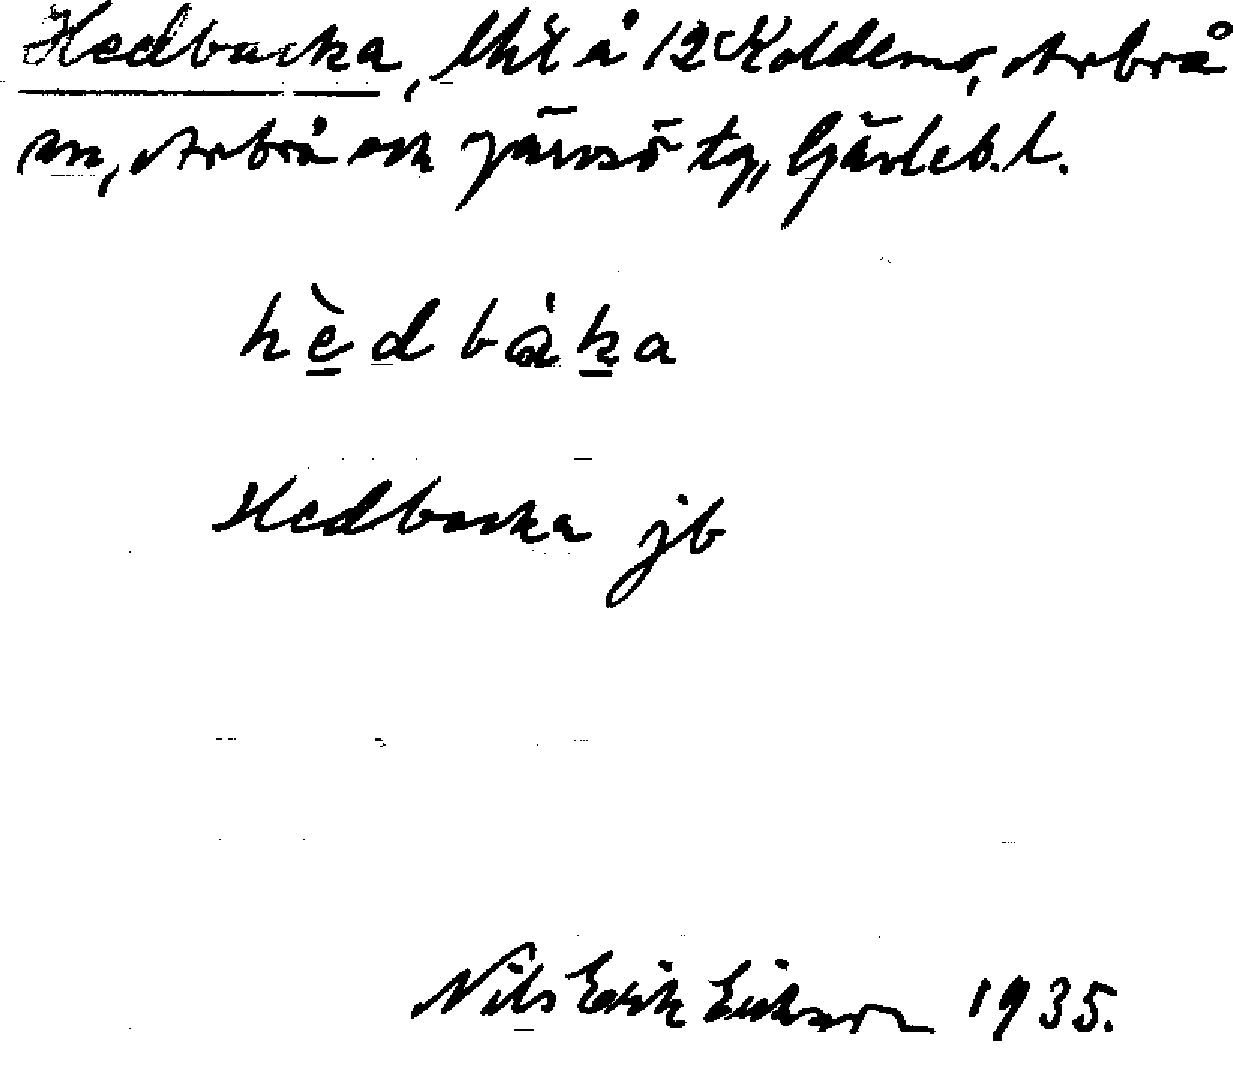 Hedbacka, lht å 12 Koldemo, Arbrå
sn, Arbrå och Järvsö tg, Gävleb. l.
hèdbàka
Hedbacka jb
Nils Erik Eriksson 1935.